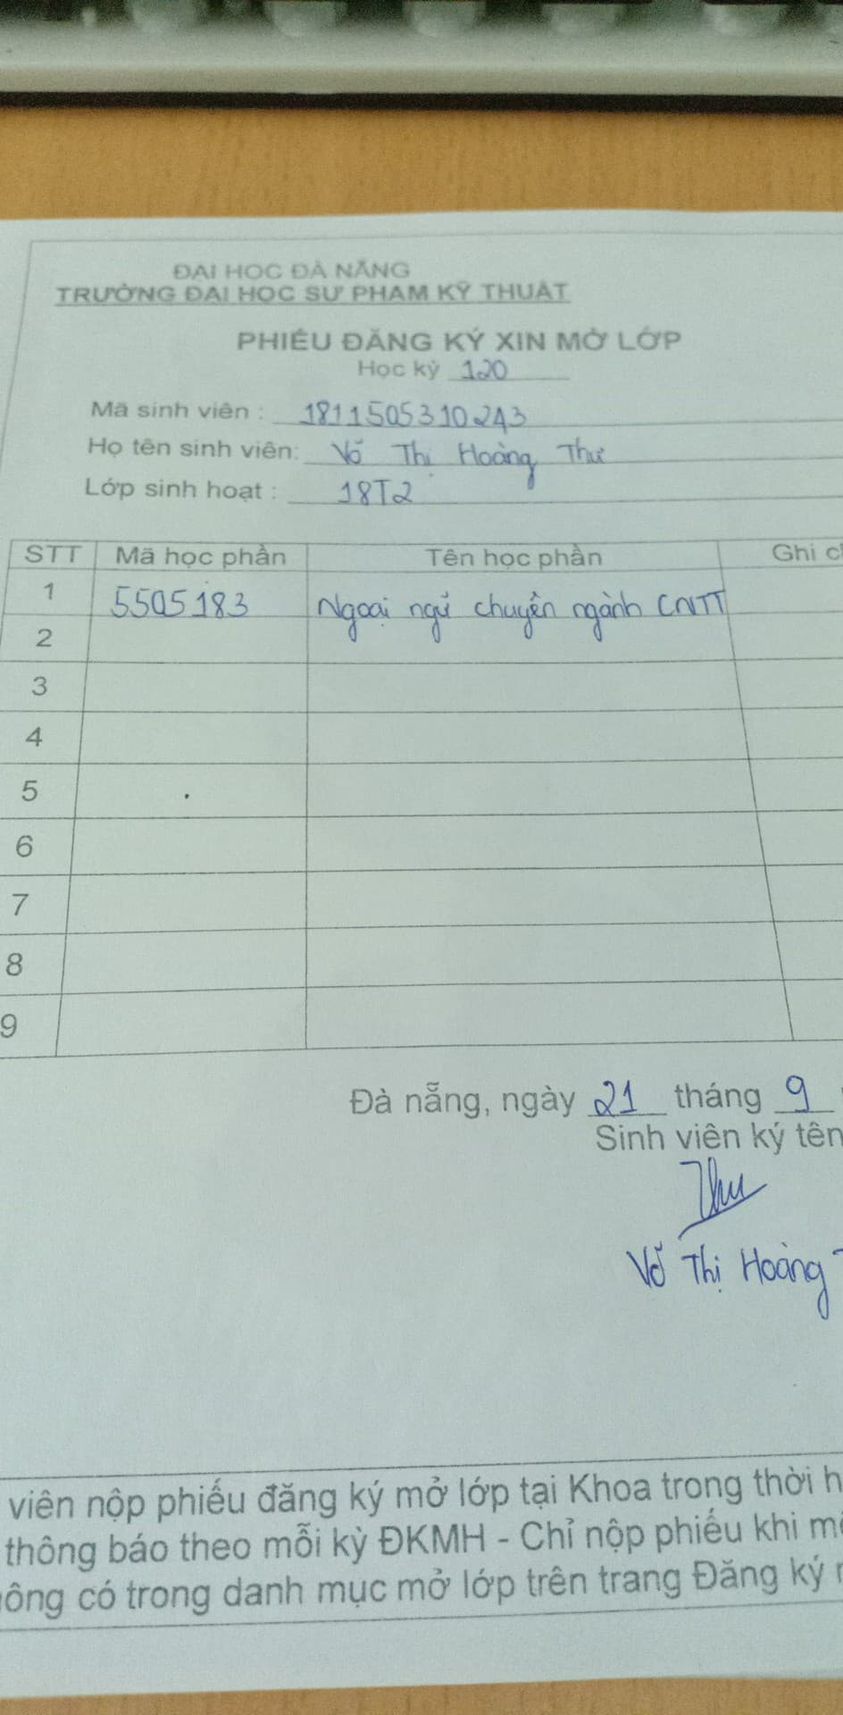 ĐẠI HỌC ĐÀ NẴNG
TRƯỜNG ĐẠI HỌC SƯ PHẠM KỸ THUẬT
PHIẾU ĐĂNG KÝ XIN MỞ LỚP
Học kỳ 120
Mã sinh viên : 1811505310243
Họ tên sinh viên: Võ Thị Hoàng Thư
Lớp sinh hoạt : 18T2
STT Mã học phần Tên học phần Ghi c
1 5505183 Ngoại ngữ chuyên ngành CNTT
2
3
4
5
6
7
8
9
Đà nẵng, ngày 21 tháng 9
Sinh viên ký tên
Thư
Võ Thị Hoàng T
viên nộp phiếu đăng ký mở lớp tại Khoa trong thời h
thông báo theo mỗi kỳ ĐKMH - Chỉ nộp phiếu khi m
ông có trong danh mục mở lớp trên trang Đăng ký